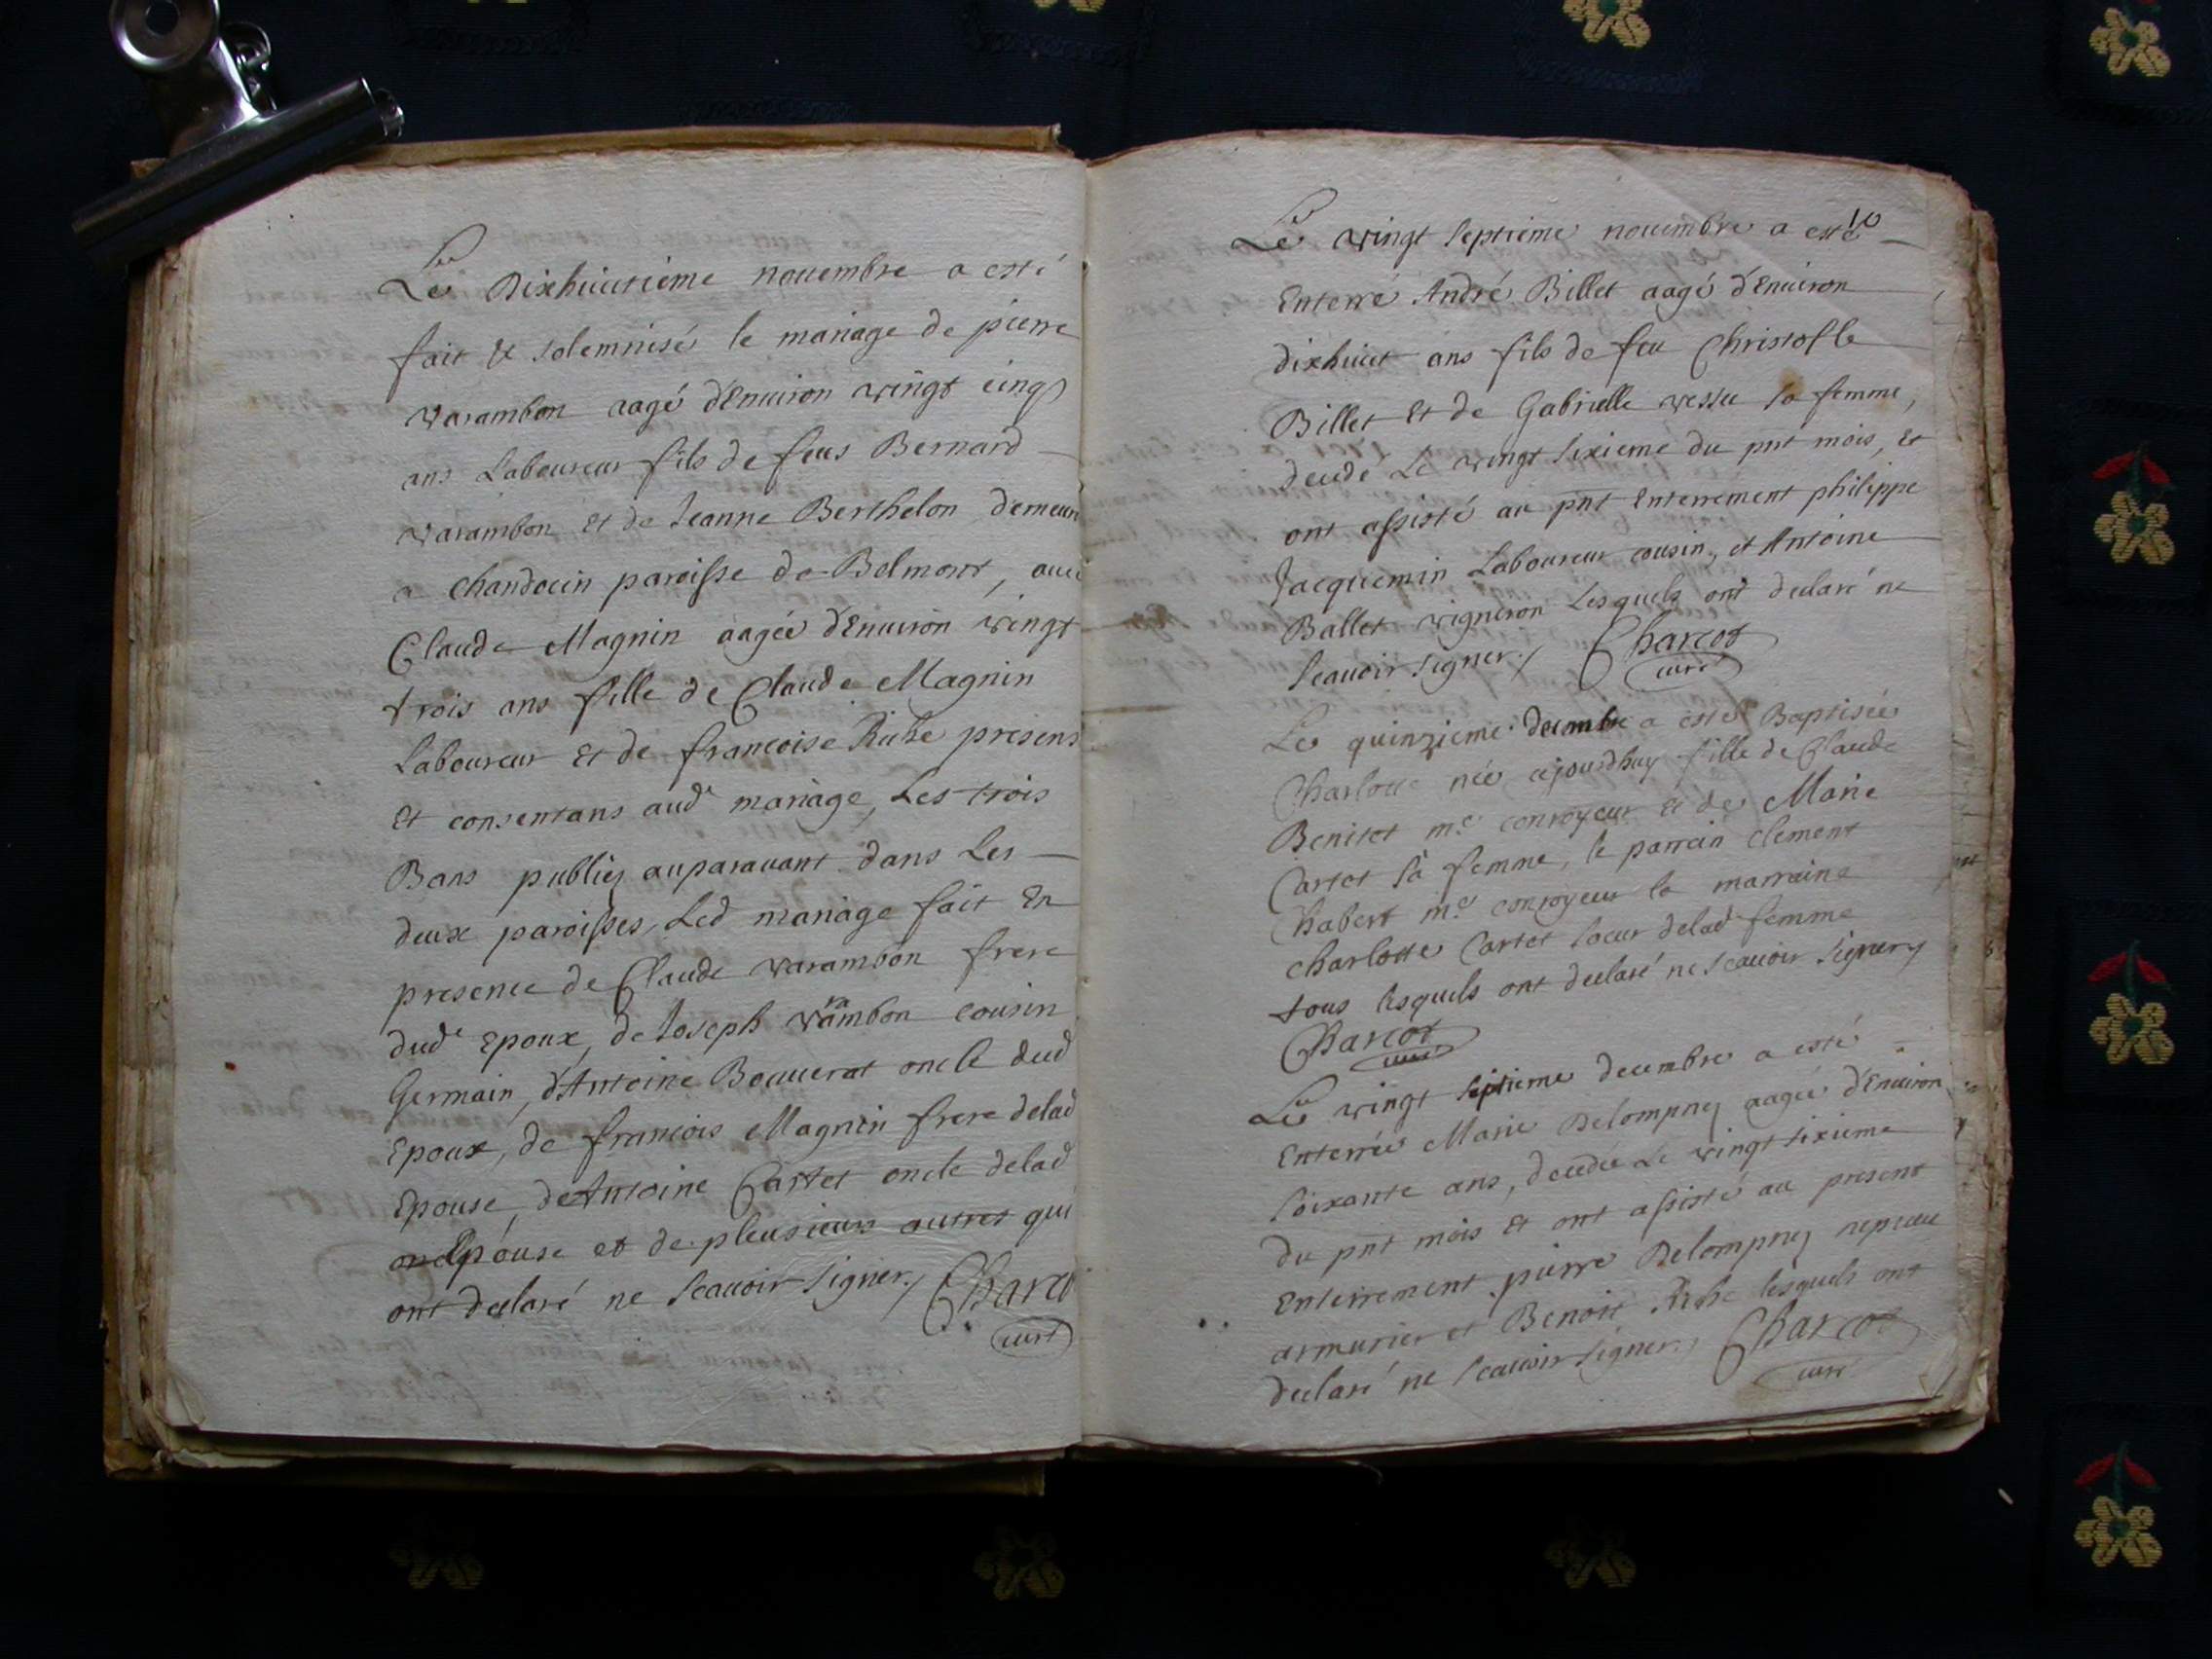 Le Dixhuictieme nouembre a esté
fait et solemnisé le mariage de pierre
varambon aagé d'Enuiron vingt cinq
ans Laboureur fils de feus Bernard
varambon Et de Jeanne Berthelon demeur
a Chandocin paroisse de Belmont, auec
Claude Magnin aagée d'Enuiron vingt
trois ans fille de Claude Magnin
Laboureur Et de francoise Riche presens
Et consentans aud mariage, Les trois
Bans publiez auparauant dans Les
deux paroisses, Led mariage fait En
presence de Claude varambon frere
dud Epoux, de Joseph varambon cousin
Germain, d'Antoine Bouuerat oncle dud
Epoux, de francois Magnin frere delad
Epouse, de Antoine Cartet oncle delad
Epouse et de pleusieurs autres qui
ont declaré ne scauoir signer./ Charco
curé
10
Le vingt septieme nouembre a esté
Enterré André Billet aagé d'Enuiron
dixhuict ans fils de feu Christofle
Billet Et de Gabrielle vessu sa femme,
decedé Le vingt sixieme du pnt mois, Et
ont assisté au pnt Enterrement philippe
Jacquemin Laboureur cousin, et Antoine
Ballet vigneron Lesquels ont declaré ne
scauoir signer./ Charcot
curé
Le quinzieme decembre a esté Baptisée
Charlotte née cejourdhuy fille de Claude
Benitet me conroyeur Et de Marie
Cartet sa femme, le parrain Clement
Chabert me conroyeur la marraine
Charlotte Cartet soeur delad femme
tous lesquels ont declaré ne scauoir signer
Charcot
curé
Le vingt septieme decembre a esté
Enterrée Marie Delompnez aagée d'Enuiron
soixante ans, decedée Le vingt sixieme
du pnt mois Et ont assisté au present
Enterrement pierre Delompnez nepueu
armurier et Benoit Riche lesquels ont
declaré ne scauoir signer./ Charcot
curé